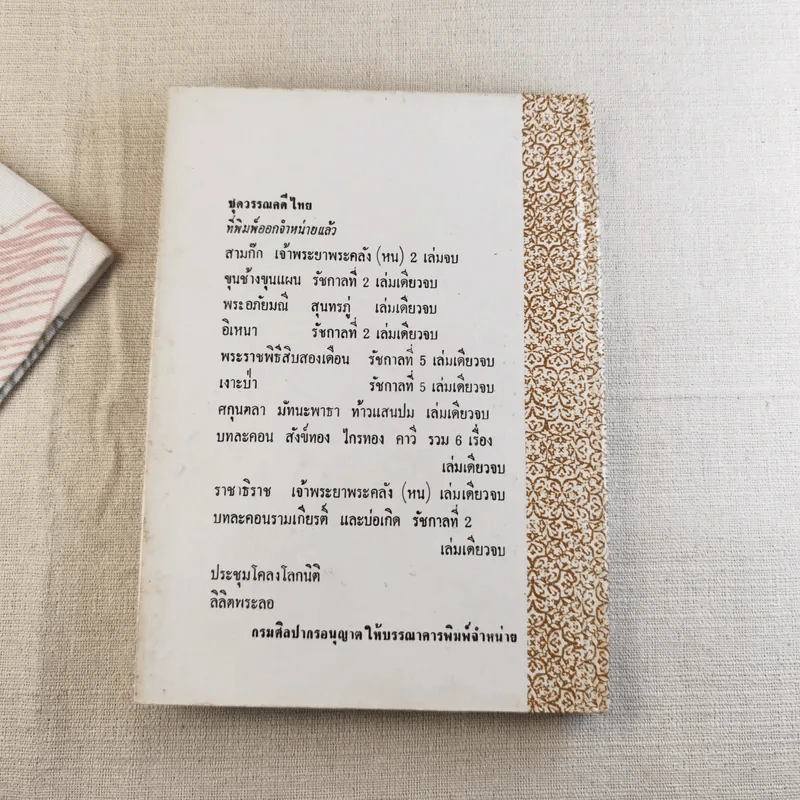 ชุดวรรณคดีไทย
ที่พิมพ์ออกจำหน่ายแล้ว
สามก๊ก เจ้าพระยาพระคลัง (หน) 2 เล่มจบ
ขุนช้างขุนแผน รัชกาลที่ 2 เล่มเดียวจบ
พระอภัยมณี สุนทรภู่ เล่มเดียวจบ
อิเหนา รัชกาลที่ 2 เล่มเดียวจบ
พระราชพิธีสิบสองเดือน รัชกาลที่ 5 เล่มเดียวจบ
เงาะป่า รัชกาลที่ 5 เล่มเดียวจบ
ศกุนตลา มัทนะพาธา ท้าวแสนปม เล่มเดียวจบ
บทละคอน สังข์ทอง ไกรทอง คาวี รวม 6 เรื่อง
เล่มเดียวจบ
ราชาธิราช เจ้าพระยาพระคลัง (หน) เล่มเดียวจบ
บทละคอนรามเกียรติ์ และบ่อเกิด รัชกาลที่ 2
เล่มเดียวจบ
ประชุมโคลงโลกนิติ
ลิลิตพระลอ
กรมศิลปากรอนุญาตให้บรรณาคารพิมพ์จำหน่าย